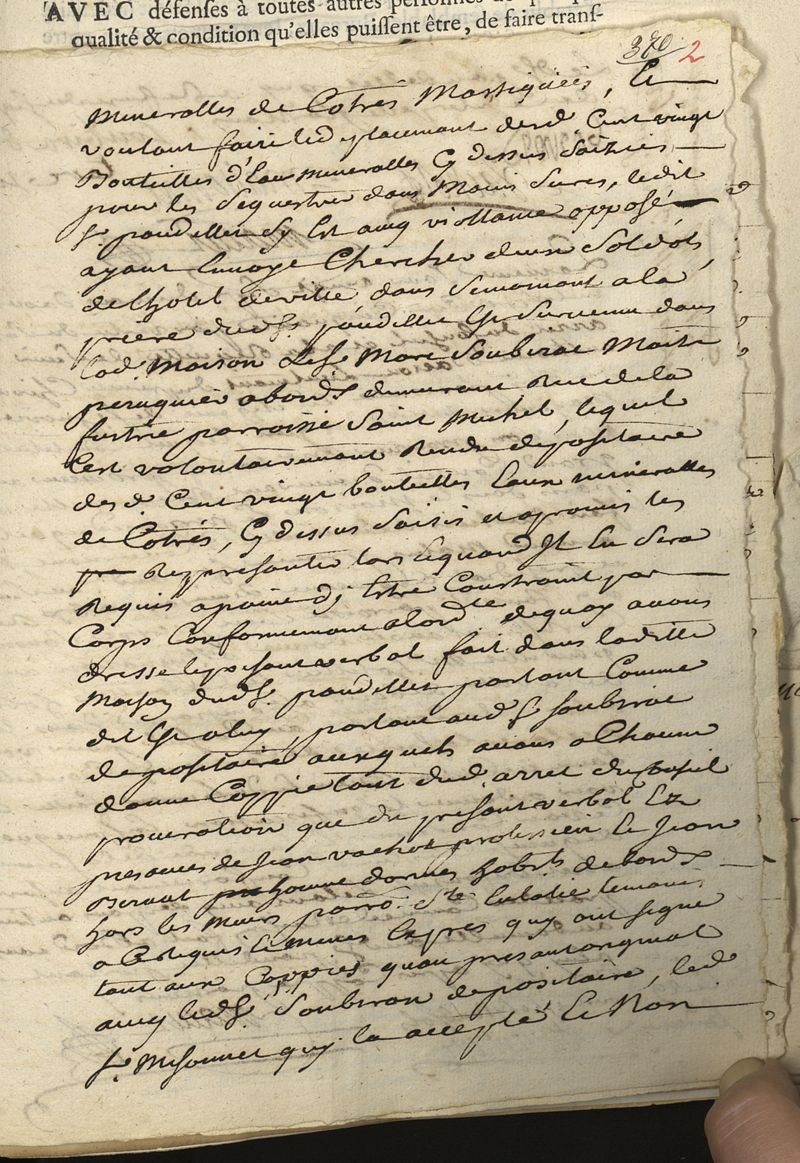 AVEC défenses à toutes autres personnes de
qualité & condition qu'elles puissent être, de faire transf-
370 2
Mineralles de Cotrés Marsiquées, Et
voulant faire led eplacement desd Cent vingt
Bouteilles d'Eau mineralles Cy dessus Saizies
pour les Sequestrer dans Mains Sures, ledit
Sr paudellet Sy Est avec viollance opposé
ayant Envoyé Chercher deux Soldats
de lhotel de ville, dans Semomant a la
priere dud Sr paudellet Est Survenu dans
lad. Maison le Sr Marc Soubirac Maitre
peruquier a bordx demeurant Rue de la
fustrie parroisse Saint Michel, lequel
Cest volontairement Rendu depositaire
desd Cent vingt bouteilles Eaux mineralles
de Cotrés, Cy dessus Saisis et a promis les
Representer lors Equand Il En Sera
Requis a paine dy Estre Constraint par
Corps Conformement a lordce dequoy avons
dresse le present verbal fait dans laditte
Maison dud Sr. paudellet parlant Comme
dit Est a luy, parlant aud Sr Soubirac
depositaire auxquels avons a Chacun
donne Coppie tant dud. arret du Conseil
procuration que du present verbal En
presance de Jean vachot praticien Et Jean
homme darmes habts. de bordx
hors les Murs parro: Ste Eulalie temoins
a Ce Requis Et menes Expres quy ont Signe
tant aux Coppies quau presant original
avec led Sr Soubiran depositaire, led
Sr. Misonnet quy la accepté, Et Non